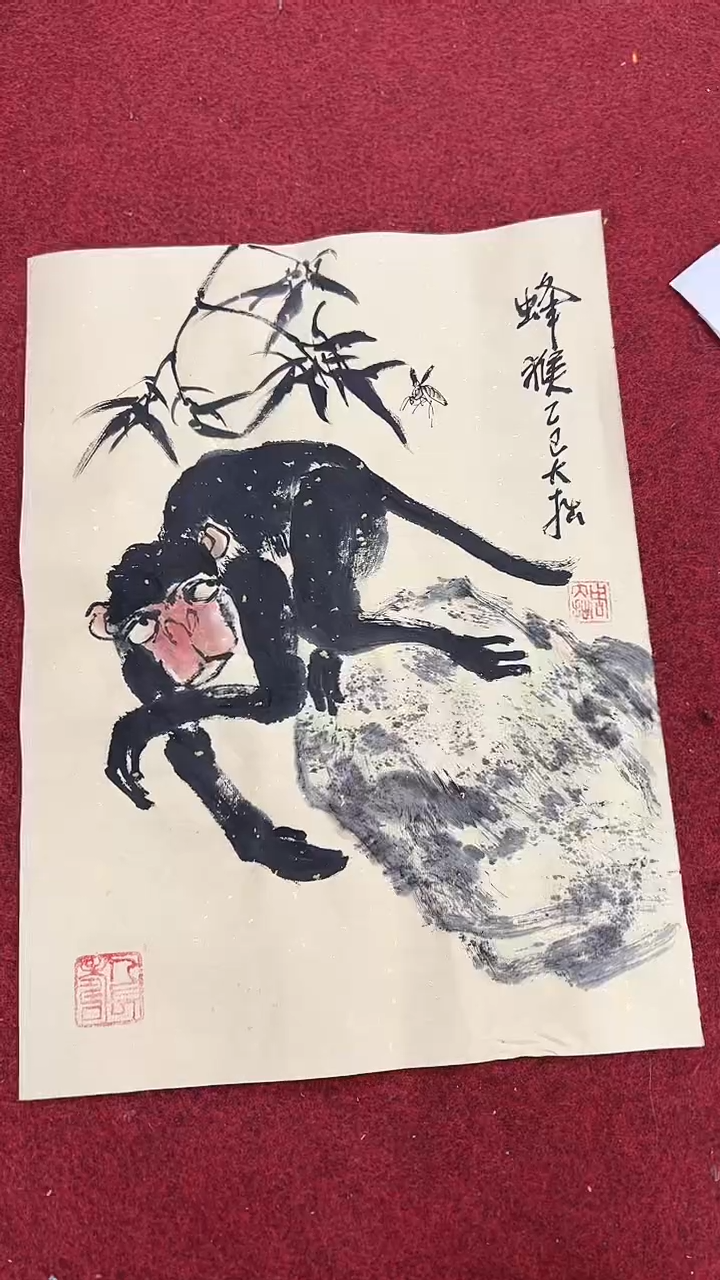 蜂猴乙巳大拙